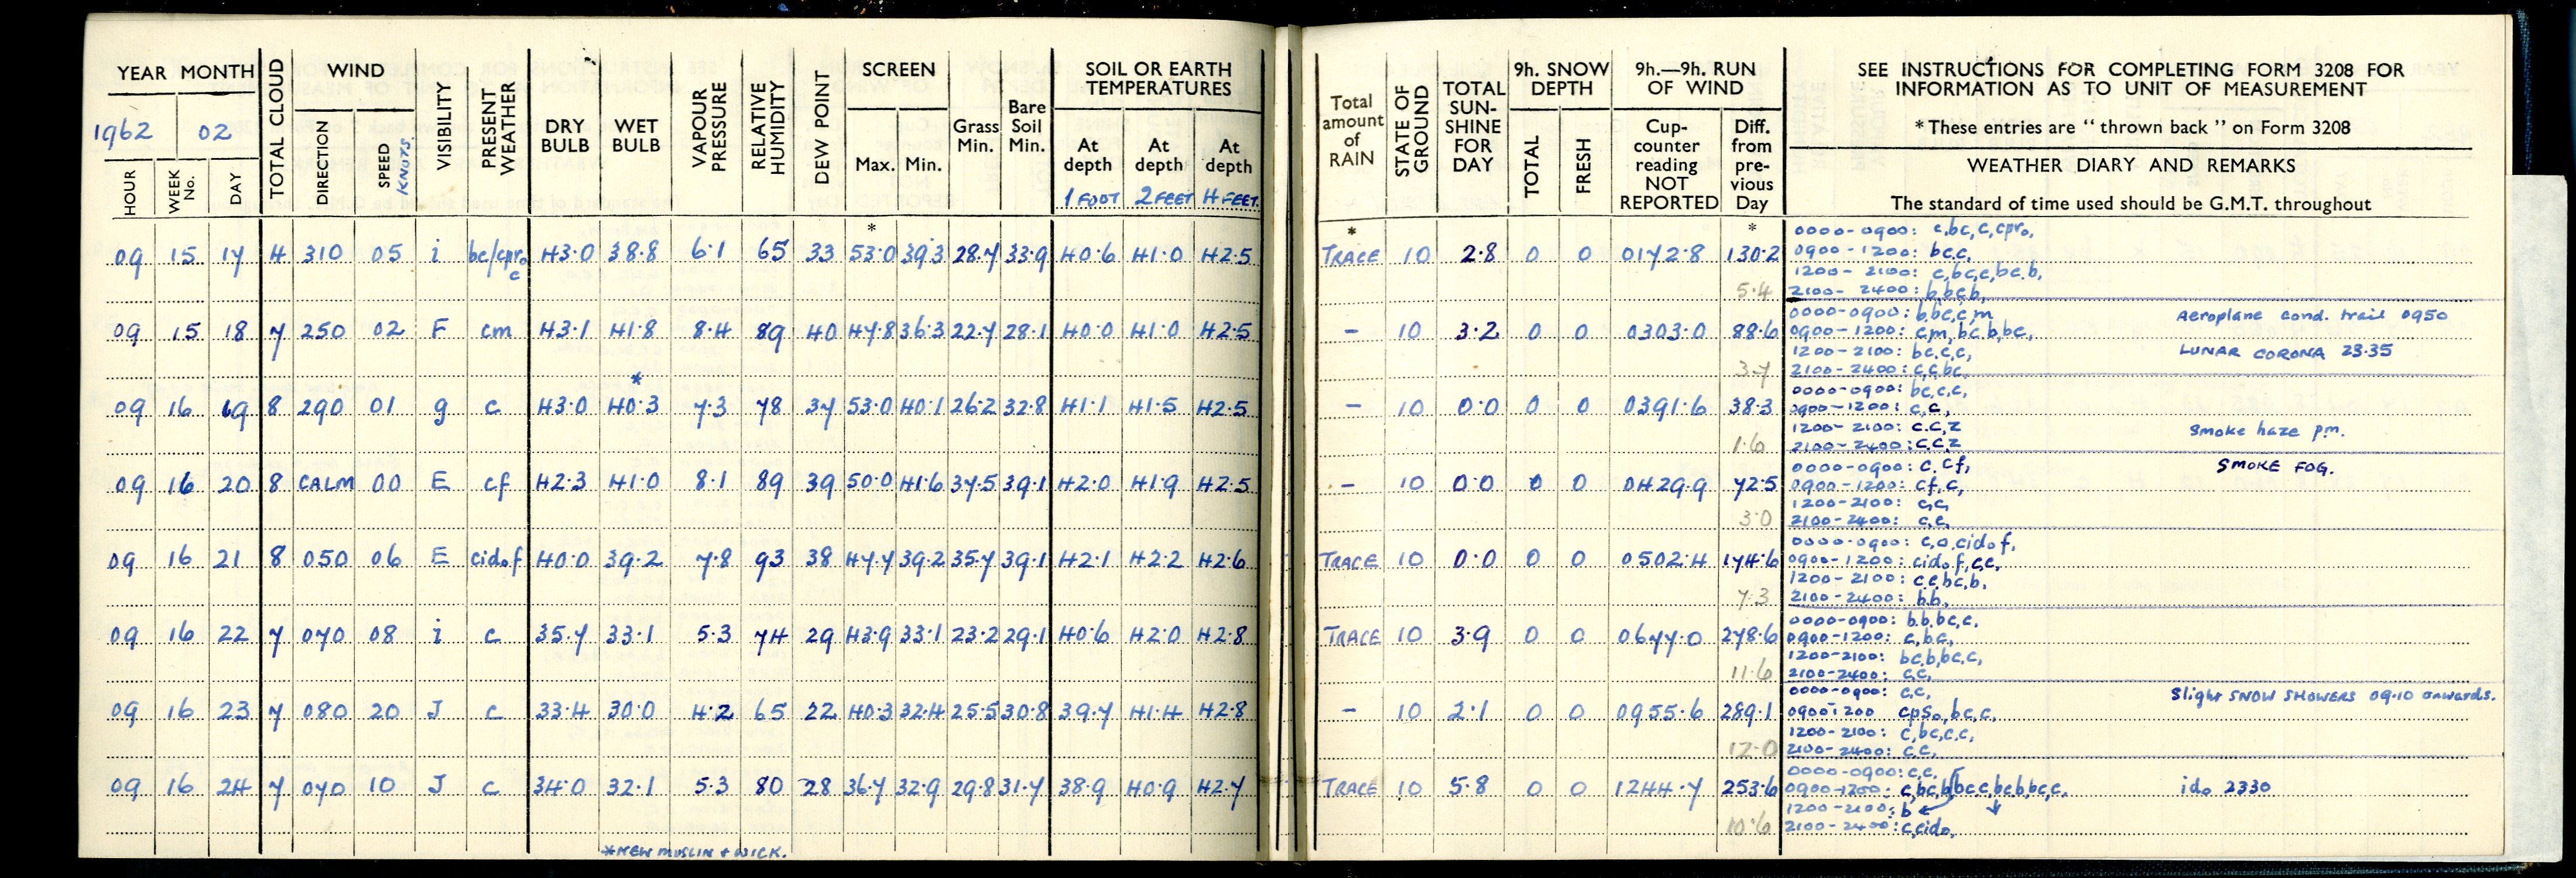 YEAR MONTH
1962 02
HOUR WEEK No. DAY
TOTAL CLOUD
WIND
DIRECTION SPEED KNOTS
VISIBILITY
PRESENT WEATHER
DRY BULB
WET BULB
VAPOUR PRESSURE
RELATIVE HUMIDITY
DEW POINT
SCREEN
Max. Min.
Grass Min.
Bare Soil Min.
SOIL OR EARTH TEMPERATURES
At depth At depth At depth
1 FOOT 2 FEET 4 FEET
Total amount of RAIN
STATE OF GROUND
TOTAL SUN-SHINE FOR DAY
9h. SNOW DEPTH
TOTAL FRESH
9h.—9h. RUN OF WIND
Cup-counter reading NOT REPORTED
Diff. from pre-vious Day
SEE INSTRUCTIONS FOR COMPLETING FORM 3208 FOR
INFORMATION AS TO UNIT OF MEASUREMENT
* These entries are "thrown back" on Form 3208
WEATHER DIARY AND REMARKS
The standard of time used should be G.M.T. throughout
* * *
09 15 17 4 310 05 i bc/cpr₀ c 43.0 38.8 6.1 65 33 53.0 39.3 28.7 33.9 40.6 41.0 42.5 TRACE 10 2.8 0 0 0172.8 130.2
5.4
0000-0900: c,bc,c,cpr₀,
0900-1200: bc,c,
1200-2100: c,bc,c,bc,b,
2100-2400: b,bc,b,
09 15 18 7 250 02 F cm 43.1 41.8 8.4 89 40 47.8 36.3 22.7 28.1 40.0 41.0 42.5 - 10 3.2 0 0 0303.0 88.6
3.7
0000-0900: b,bc,c,m Aeroplane cond. trail 0950
0900-1200: cm,bc,b,bc,
1200-2100: bc,c,c, LUNAR CORONA 23.35
2100-2400: c,c,bc,
*
09 16 19 8 290 01 g c 43.0 40.3 7.3 78 37 53.0 40.1 26.2 32.8 41.1 41.5 42.5 - 10 0.0 0 0 0391.6 38.3
1.6
0000-0900: bc,c,c,
0900-1200: c,c,
1200-2100: c.c,z Smoke haze pm.
2100-2400: c,c z
09 16 20 8 CALM 00 E cf 42.3 41.0 8.1 89 39 50.0 41.6 37.5 39.1 42.0 41.9 42.5 - 10 0.0 0 0 0429.9 72.5
3.0
0000-0900: c, cf, SMOKE FOG.
0900-1200: cf,c,
1200-2100: c,c,
2100-2400: c,c,
09 16 21 8 050 06 E cid₀f 40.0 39.2 7.8 93 38 47.7 39.2 35.7 39.1 42.1 42.2 42.6 TRACE 10 0.0 0 0 0502.4 174.6
7.3
0000-0900: c,o,cid₀f,
0900-1200: cid₀f,c,c,
1200-2100: c,c,bc,b,
2100-2400: b,b,
09 16 22 7 070 08 i c 35.7 33.1 5.3 74 29 43.9 33.1 23.2 29.1 40.6 42.0 42.8 TRACE 10 3.9 0 0 0677.0 278.6
11.6
0000-0900: b,b,bc,c,
0900-1200: c,bc,
1200-2100: bc,b,bc,c,
2100-2400: c,c,
09 16 23 7 080 20 J c 33.4 30.0 4.2 65 22 40.3 32.4 25.5 30.8 39.7 41.4 42.8 - 10 2.1 0 0 0955.6 289.1
12.0
0000-0900: c,c, Slight SNOW SHOWERS 09.10 onwards.
0900-1200 cps₀,bc,c,
1200-2100: c,bc,c,c,
2100-2400: c,c,
09 16 24 7 070 10 J c 34.0 32.1 5.3 80 28 36.7 32.9 29.8 31.7 38.9 40.9 42.7 TRACE 10 5.8 0 0 1244.7 253.6
10.6
0000-0900: c,c,
0900-1200: c,bc,b,bc,c,bc,b,bc,c, id₀ 2330
1200-2100: b
2100-2400: c,cid₀,
*NEW MUSLIN + WICK.